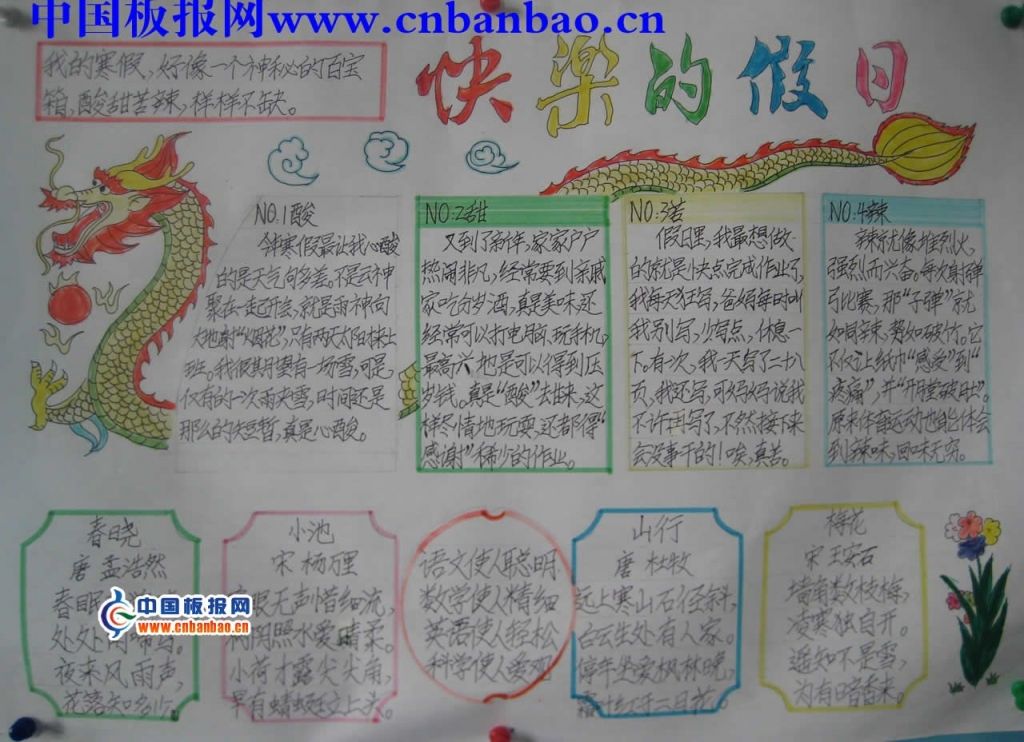 中国板报网www.cnbanbao.cn
我的寒假,好像一个神秘的百宝
箱,酸甜苦辣,样样不缺。
快乐的假日
NO.1酸
寒假最让我心酸
的是天气向多差。不是云神
聚在一起开会,就是雨神向
大地射“烟花”,只有两天太阳上
班。我很期望有一场雪,可是,
仅有的一次雨夹雪,时间还是
那么的短暂,真是心酸。
NO:2甜
又到了新年,家家户户
热闹非凡,经常要到亲戚
家吃分岁酒,真是美味,还
经常可以打电脑,玩手机,
最高兴地是可以得到压
岁钱。真是“酸”去甜来,这
样尽情地玩耍,还都得“
感谢”稀少的作业。
NO:3苦
假日里,我最想做
的就是快点完成作业了,
我每天狂写,爸妈每时叫
我别写,少写点,休息一
下。有次,我一天写了二十八
页,我还写,可妈妈说我
不许再写了,不然接下来
会没事干的!唉,真苦。
NO:4辣
辣就像堆烈火,
强烈而兴奋。每次射弹
弓比赛,那“子弹”就
如同辣,势如破竹。它
不仅让纸巾“感受”到“
疼痛”,并“开膛破肚”。
原来体育运动也能体会
到辣味,回味无穷。
春晓
唐 孟浩然
春眠
处处闻啼鸟。
夜来风雨声,
花落知多少。
小池
宋 杨万里
泉眼无声惜细流,
树阴照水爱晴柔。
小荷才露尖尖角,
早有蜻蜓立上头。
语文使人聪明
数学使人精细
英语使人轻松
科学使人爱观
山行
唐 杜牧
远上寒山石径斜,
白云生处有人家。
停车坐爱枫林晚,
霜叶红于二月花。
梅花
宋 王安石
墙角数枝梅,
凌寒独自开。
遥知不是雪,
为有暗香来。
中国板报网
www.cnbanbao.cn